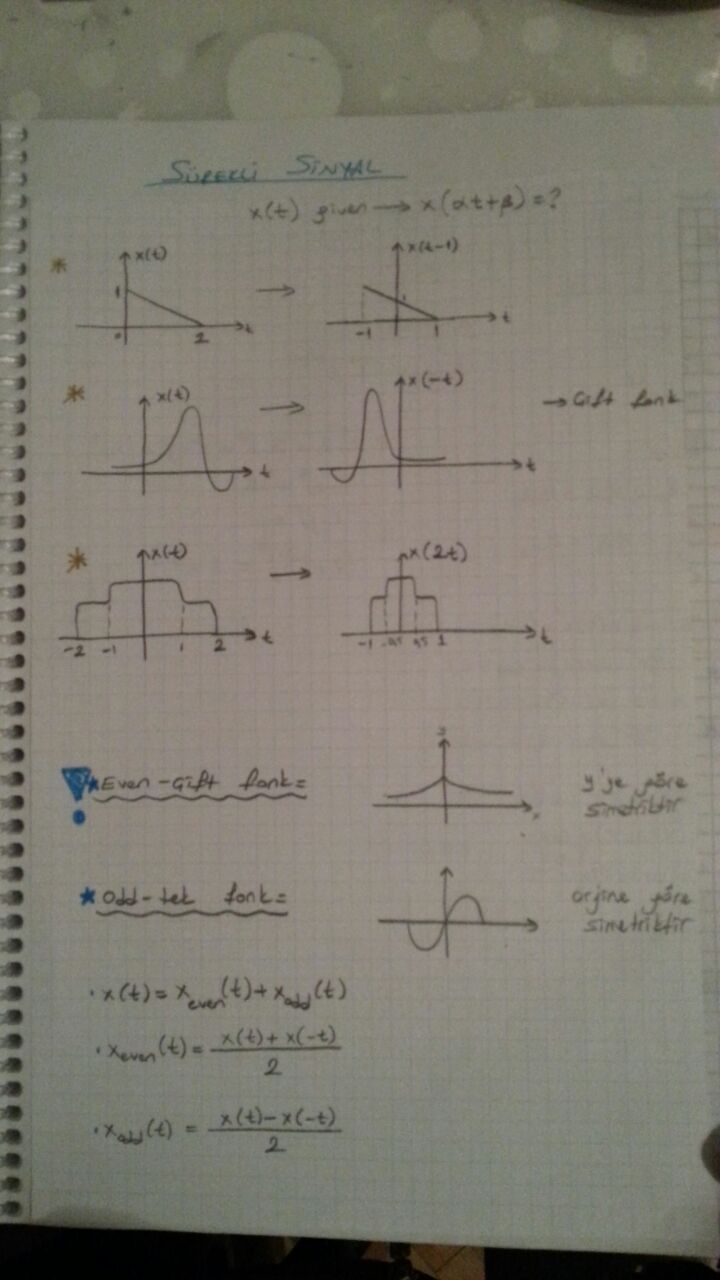 SÜREKLİ SİNYAL
x(t) given → x(αt+β)=?
* x(t) → x(t-1)
1
0 2 t -1 1 t
* x(t) → x(-t) → Çift fonk
t t
* x(t) → x(2t)
-2 -1 1 2 t -1 -0,5 0,5 1 t
! * Even-Çift fonk= y'ye göre
simetriktir
x
* Odd-tek fonk= orjine göre
simetriktir
• x(t) = x_even(t) + x_odd(t)
• x_even(t) = x(t)+x(-t) / 2
• x_odd(t) = x(t)-x(-t) / 2